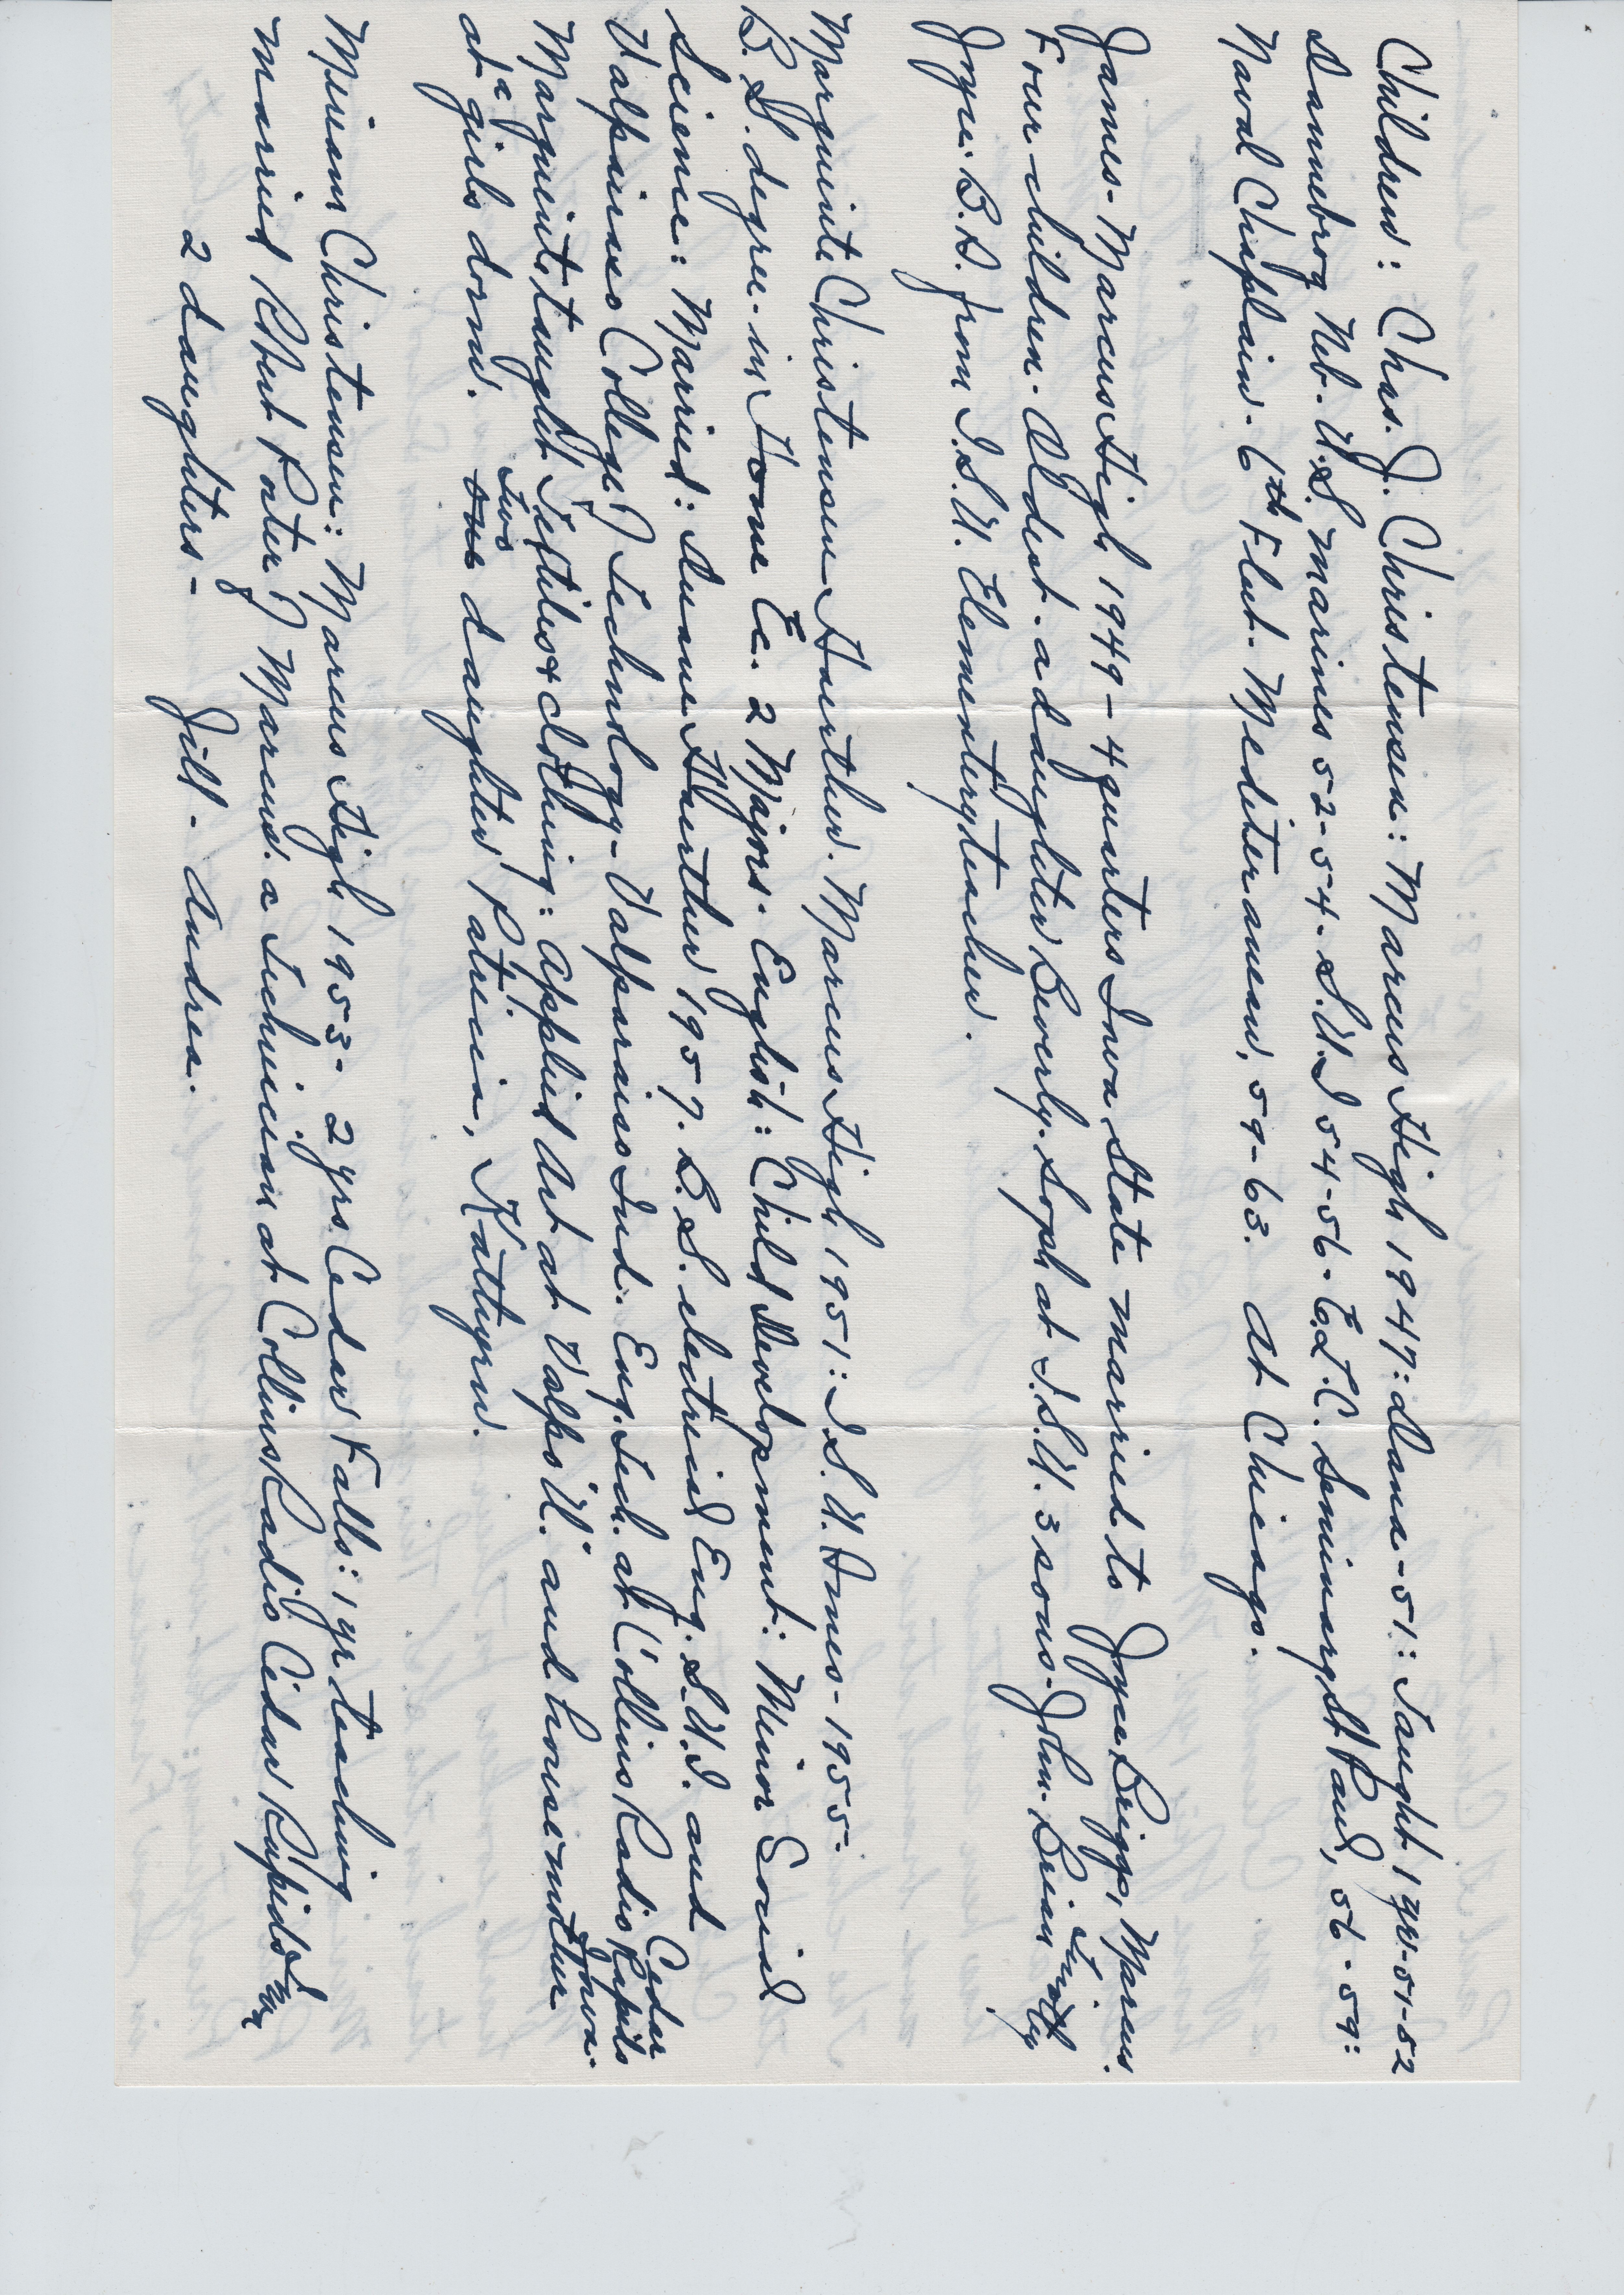 Children: Chas. J. Christensen: Marcus High 1947: Dana-51: Taught 1 yr-51-52
Dannebrog Neb. U.S. Marines 52-54. S.U.I 54-56. E.L.C. Seminary St Paul, 56-59:
Naval Chaplain- 6th Fleet. Mediteranean, 59-63. At Chicago.
James- Marcus High 1949- 4 quarters Iowa State married to Joyce Briggs, Marcus.
Four children. Oldest. a daughter Beverly. Soph at I.S.U. 3 sons. John. Brian Timothy
Joyce. B.S. from I.S.U. Elementry teacher.
Marguerite Christensen Haerther. Marcus High 1951: I.S.U. Ames- 1955-
B.S. degree. in Home Ec. 2 Majors. English: Child Development: Minor Social
Science: Married: Duane Haerther 1957. B.S. electrical Eng. S.U.I. and
Valpairso College of Technology- Valparaiso Ind. Eng. Tech. at Collins Radio Cedar Rapids Iowa.
Marguerite taught Textiles & clothing: Applied Art at Valpo U. and housemother
at a girls dorm. one Two daughter Patricia, Kathyrn.
Miriam Christensen: Marcus High 1953- 2 yrs. Cedar Falls: 1 yr teaching
married Robert Pater of Marcus. a technician at Collins Radio Cedar Rapids
2 daughters- Jill- Andrea.